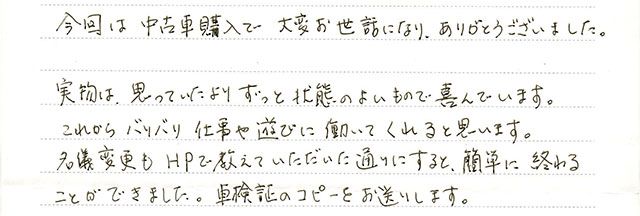 今回は中古車購入で大変お世話になり、ありがとうございました。
実物は、思っていたよりずっと状態のよいもので喜んでいます。
これからバリバリ仕事や遊びに働いてくれると思います。
名儀変更もHPで教えていただいた通りにすると、簡単に終わる
ことができました。車検証のコピーをお送りします。